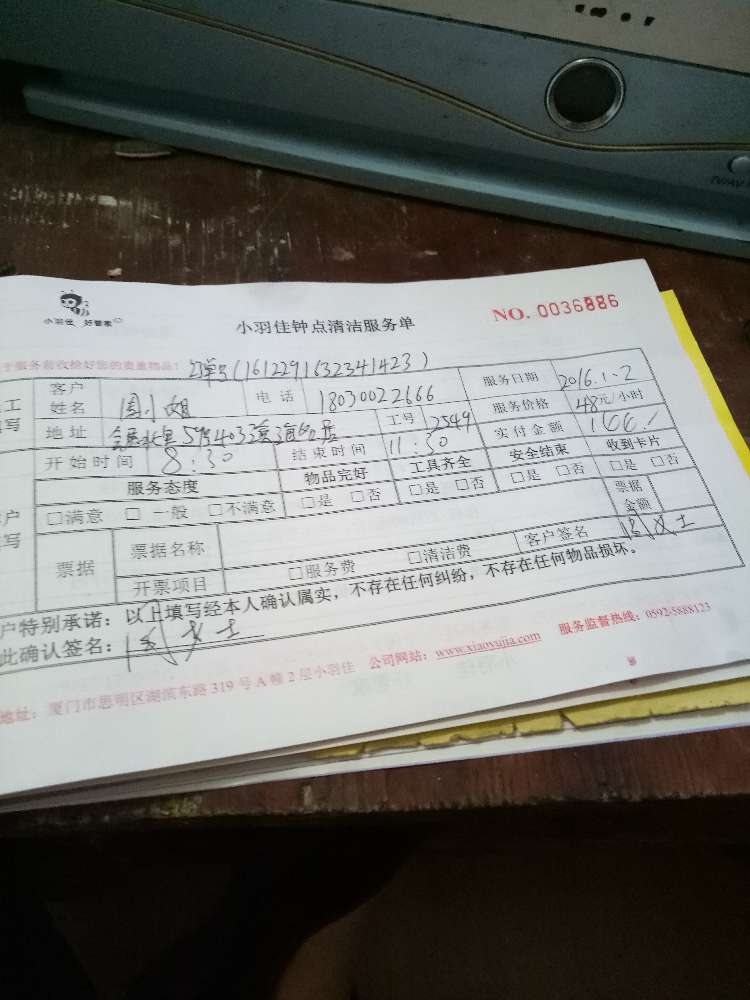 小羽佳 好管家
小羽佳钟点清洁服务单
NO. 0036886
于服务前收捡好您的贵重物品!
订单号(1612291632341423)
工
写
客户姓名 周小姐 电话 18030022666 服务日期 2016.1.2
地址 59号403 工号 2549 服务价格 48元/小时
开始时间 8:30 结束时间 11:30 实付金额
服务态度 物品完好 工具齐全 安全结束 收到卡片
户
写
□满意 □一般 □不满意 □是 □否 □是 □否 □是 □否 □是 □否
票据 票据名称 票据金额
开票项目 □服务费 □清洁费 客户签名 周女士
户特别承诺:以上填写经本人确认属实,不存在任何纠纷,不存在任何物品损坏。
此确认签名: 周女士
地址:厦门市思明区湖滨东路319号A幢2层小羽佳 公司网站:www.xiaoyujia.com 服务监督热线:0592-5888123